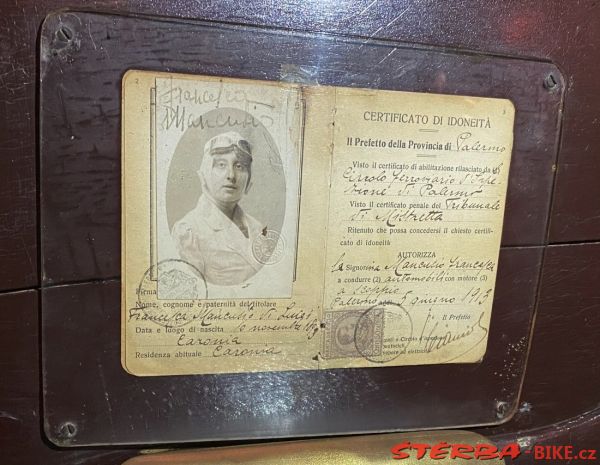 Francesca
Mancusio
Firma
Nome, cognome e paternità del titolare
Francesca Mancusio di Luigi
Data e luogo di nascita 10 novembre
Caronia
Residenza abituale Caronia
CERTIFICATO DI IDONEITÀ
Il Prefetto della Provincia di Palermo
Visto il certificato di abilitazione rilasciato dal
Circolo Ferroviario d'Ispe
zione di Palermo
Visto il certificato penale del Tribunale
di Mistretta
Ritenuto che possa concedersi il chiesto certifi-
cato di idoneità
AUTORIZZA
la Signorina Mancusio Francesca
a condurre (2) automobili con motore (3)
a scoppio
Palermo 3 giugno 1913
Il Prefetto
STĔRBA-BIKE.cz